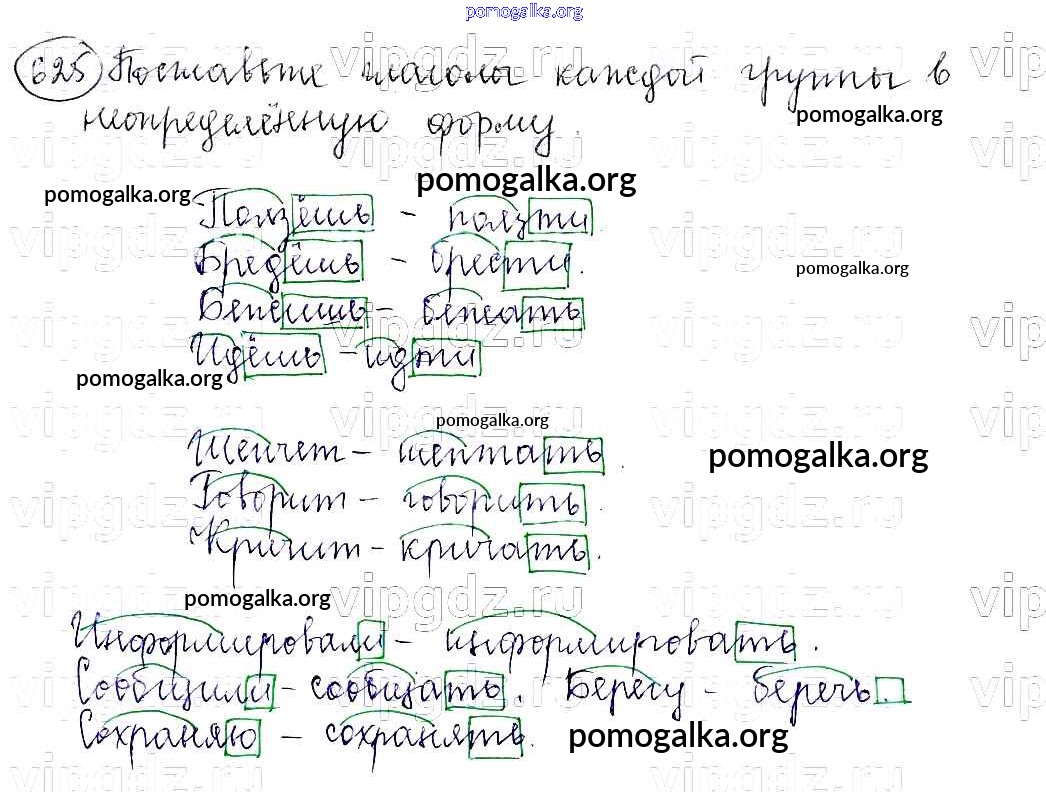 pomogalka.org
625 Поставьте глаголы каждой группы в
неопределённую форму.
pomogalka.org
pomogalka.org
pomogalka.org
Ползёшь - ползти.
Бредёшь - брести.
pomogalka.org
Бежишь - бежать
Идёшь - идти
pomogalka.org
pomogalka.org
Шепчет - шептать.
pomogalka.org
Говорит - говорить.
Кричит - кричать.
pomogalka.org
Информировали - информировать.
Сообщили - сообщать. Берегу - беречь.
Сохраняю - сохранять.
pomogalka.org
vipgdz.ru